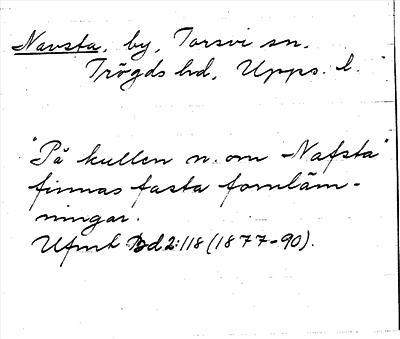 Navsta, by, Torsvi sn.
Trögds hd, Upps. l.
"På kullen n. om Nafsta"
finnas fasta fornläm-
ningar.
Ufmt Bd 2:118 (1877-90).